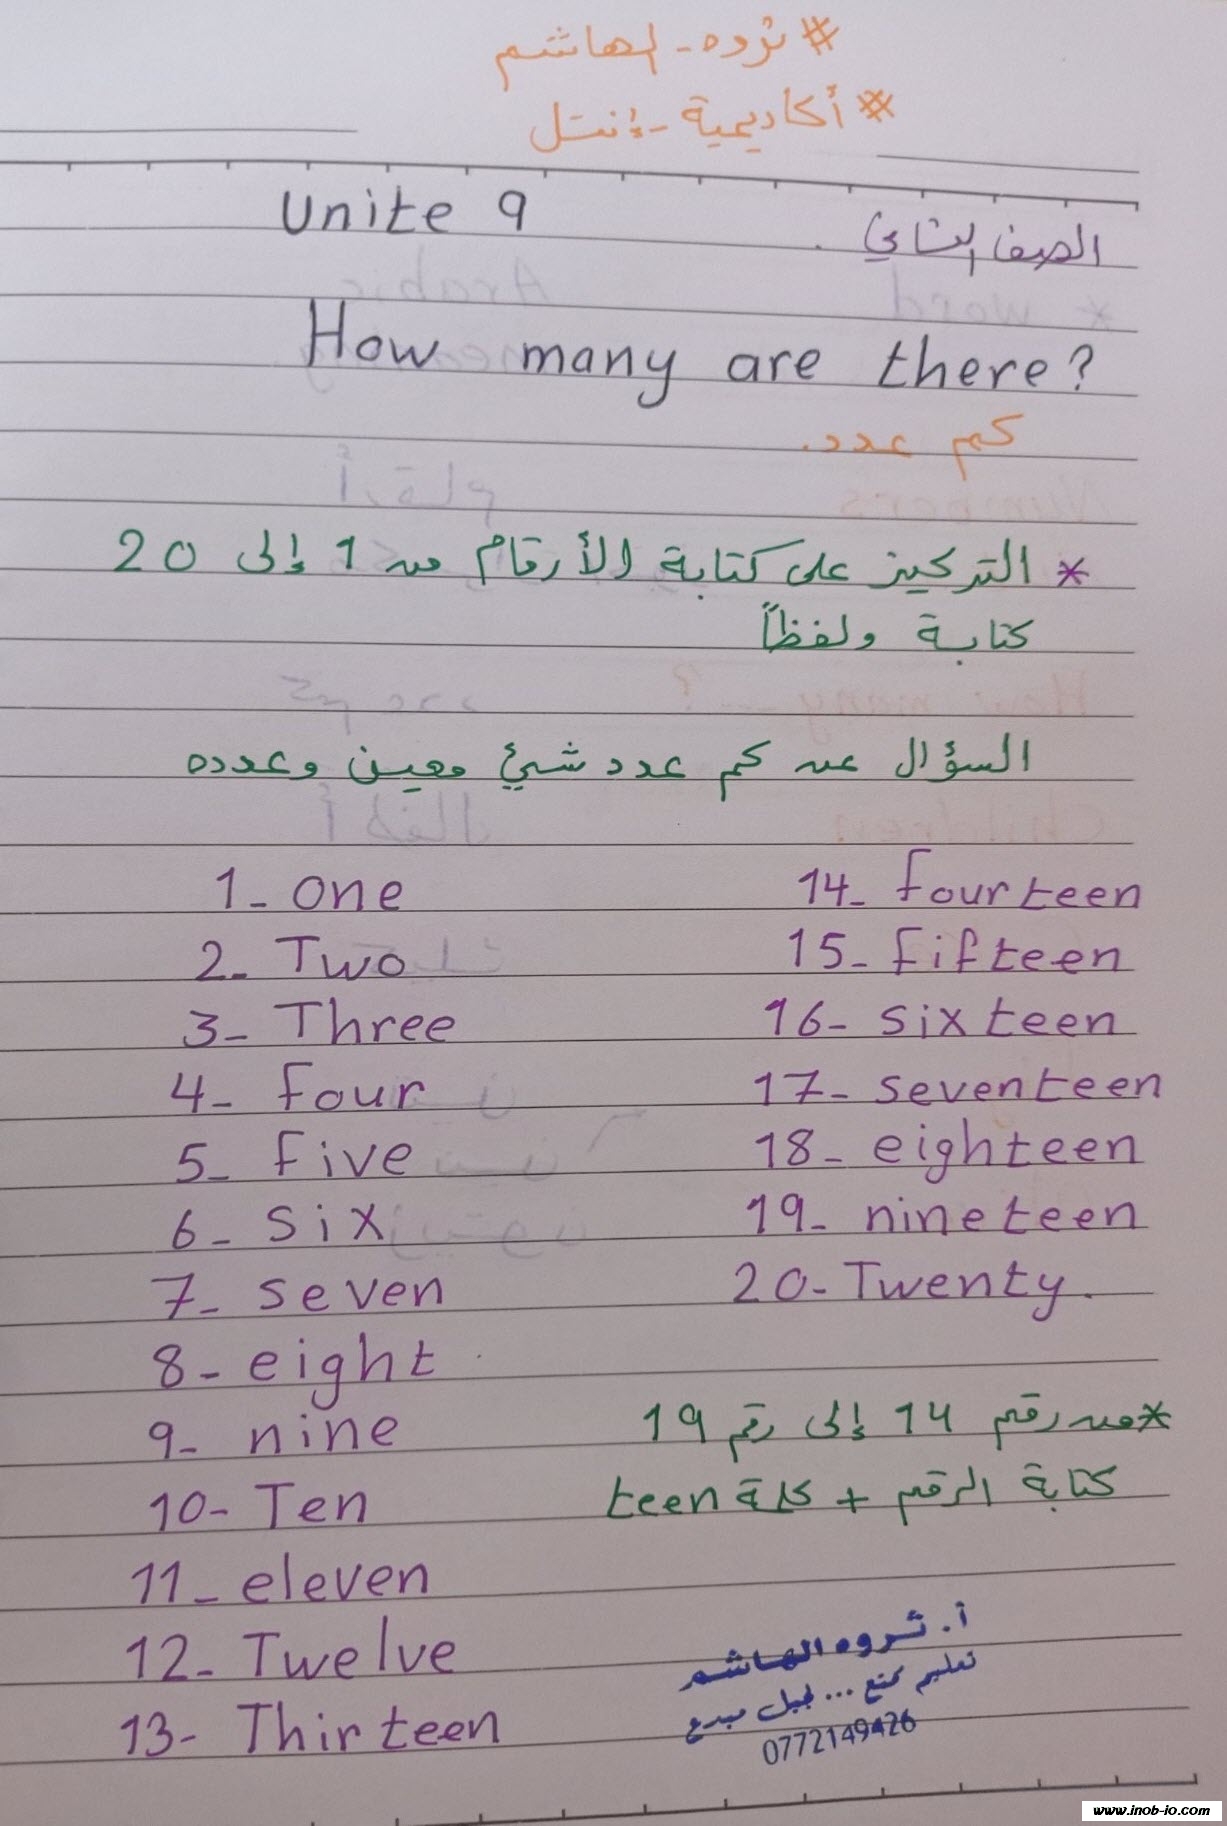 # ثروه - الهاشم
# أكاديمية - إنتل
Unite 9
الصف الثاني
How many are there?
كم عدد.
* التركيز على كتابة الأرقام من 1 إلى 20
كتابة ولفظاً
السؤال عن كم عدد شيئ معين وعدده
1- one
2- Two
3- Three
4- four
5- five
6- six
7- seven
8- eight
9- nine
10- Ten
11- eleven
12- Twelve
13- Thirteen
14- fourteen
15- fifteen
16- sixteen
17- seventeen
18- eighteen
19- nineteen
20- Twenty.
* من رقم 14 إلى رقم 19
كتابة الرقم + كلمة teen
أ. ثروه الهاشم
تعليم ممتع ... لجيل مبدع
0772149426
www.inob-io.com